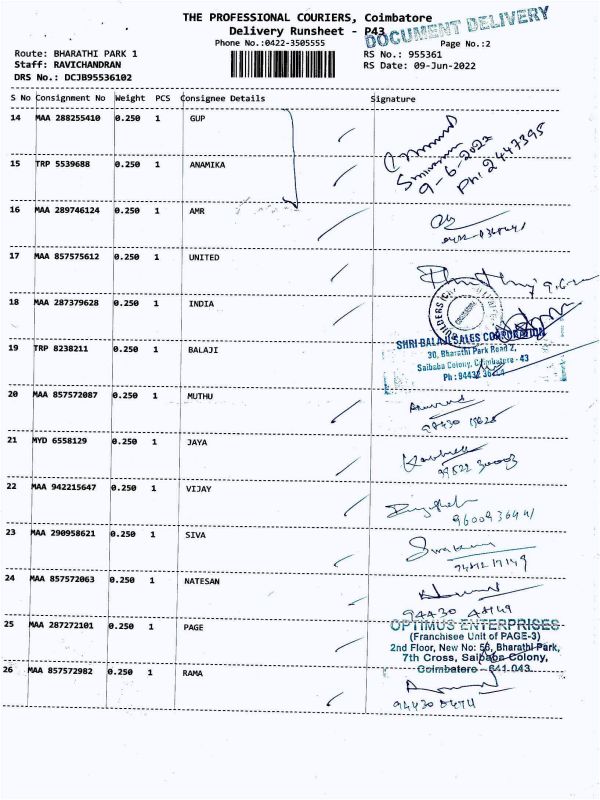 THE PROFESSIONAL COURIERS, Coimbatore
Delivery Runsheet - P43
DOCUMENT DELIVERY
Phone No.:0422-3505555
Page No.:2
Route: BHARATHI PARK 1
RS No.: 955361
Staff: RAVICHANDRAN
RS Date: 09-Jun-2022
DRS No.: DCJB95536102
S No Consignment No Weight PCS Consignee Details Signature
14 MAA 288255410 0.250 1 GUP
9-6-2022
Ph: 2447395
15 TRP 5539688 0.250 1 ANAMIKA
16 MAA 289746124 0.250 1 AMR
17 MAA 857575612 0.250 1 UNITED
18 MAA 287379628 0.250 1 INDIA
SHRI BALAJI SALES CORPORATION
30, Bharathi Park Road 2,
Saibaba Colony, Coimbatore - 43
19 TRP 8238211 0.250 1 BALAJI
Ph : 94432
20 MAA 857572087 0.250 1 MUTHU
21 MYD 6558129 0.250 1 JAYA
99522 30003
22 MAA 942215647 0.250 1 VIJAY
9600936441
23 MAA 290958621 0.250 1 SIVA
24 MAA 857572063 0.250 1 NATESAN
94430
25 MAA 287272101 0.250 1 PAGE
OPTIMUS ENTERPRISES
(Franchisee Unit of PAGE-3)
2nd Floor, New No: 56, Bharathi Park,
7th Cross, Saibaba Colony,
Coimbatore - 641 043.
26 MAA 857572982 0.250 1 RAMA